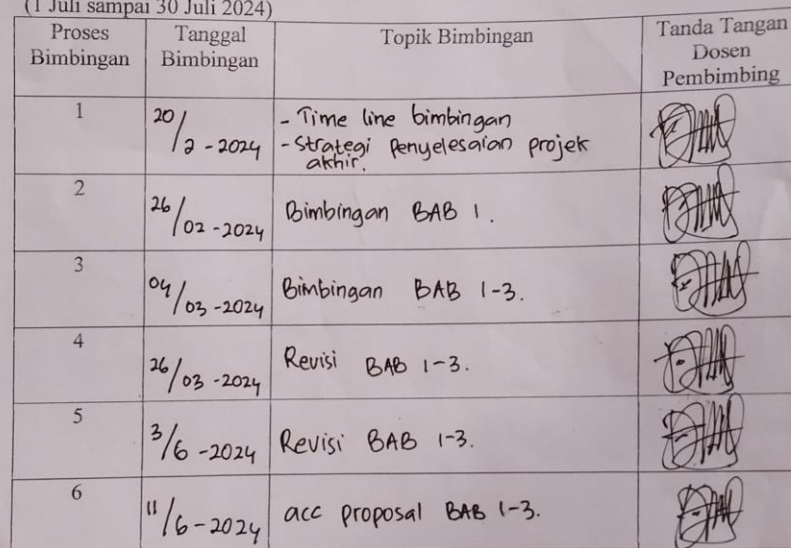 (1 Juli sampai 30 Juli 2024)
Proses Bimbingan
Tanggal Bimbingan
Topik Bimbingan
Tanda Tangan Dosen Pembimbing
1
20/2-2024
- Time line bimbingan
- Strategi Penyelesaian projek
akhir.
2
26/02-2024
Bimbingan BAB 1.
3
04/03-2024
Bimbingan BAB 1-3.
4
26/03-2024
Revisi BAB 1-3.
5
3/6-2024
Revisi BAB 1-3.
6
11/6-2024
acc proposal BAB 1-3.